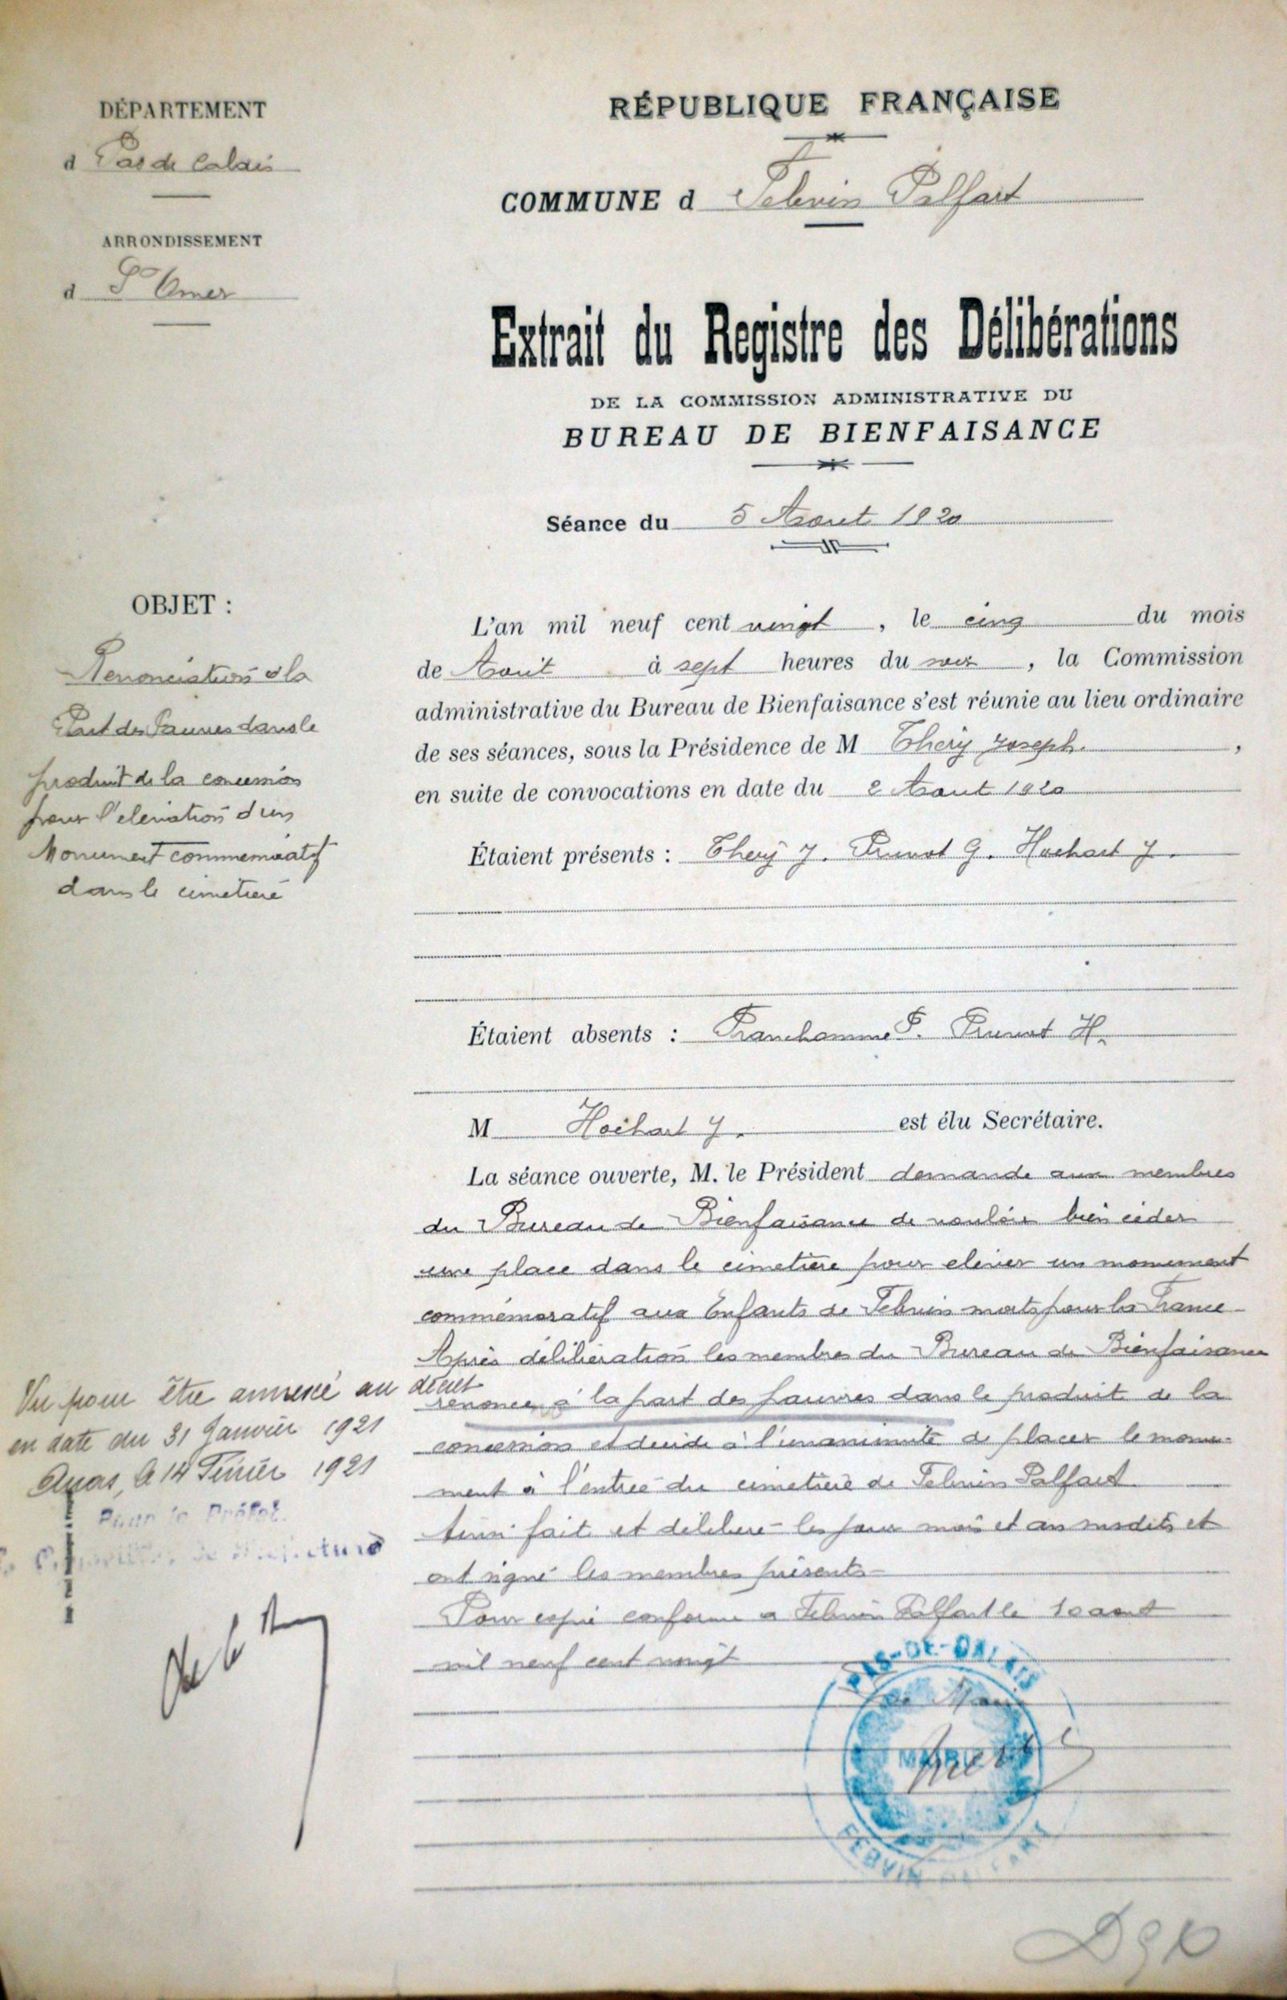 DÉPARTEMENT
d Pas de Calais
ARRONDISSEMENT
d St Omer
RÉPUBLIQUE FRANÇAISE
COMMUNE d Febvin Palfart
Extrait du Registre des Délibérations
DE LA COMMISSION ADMINISTRATIVE DU
BUREAU DE BIENFAISANCE
Séance du 5 Aout 1920
OBJET :
Renonciation à la
Part des Pauvres dans le
produit de la concession
pour l'elevation d'un
Monument commemoratif
dans le cimetière
L'an mil neuf cent vingt, le cinq du mois
de Aout à sept heures du soir, la Commission
administrative du Bureau de Bienfaisance s'est réunie au lieu ordinaire
de ses séances, sous la Présidence de M Thery Joseph,
en suite de convocations en date du 2 Aout 1920
Étaient présents : Thery J. Pruvot G. Hochart J.
Étaient absents : Franchomme P. Pruvot H.
M Hochart J. est élu Secrétaire.
La séance ouverte, M. le Président demande aux membres
du Bureau de Bienfaisance de vouloir bien céder
une place dans le cimetière pour elever un monument
commémoratif aux Enfants de Febvin morts pour la France
Après délibération les membres du Bureau de Bienfaisance
renonce à la part des pauvres dans le produit de la
concession et decide à l'unanimité de placer le monu-
ment à l'entrée du cimetière de Febvin Palfart
Ainsi fait et délibéré les jour mois et an susdits et
ont signé les membres présents
Pour copie conforme a Febvin Palfart le 10 aout
mil neuf cent vingt
Le Maire
PAS-DE-CALAIS
MAIRIE
FEBVIN-PALFART
Vu pour être annexé au décret
en date du 31 Janvier 1921
Arras, le 14 Février 1921
Pour le Préfet.